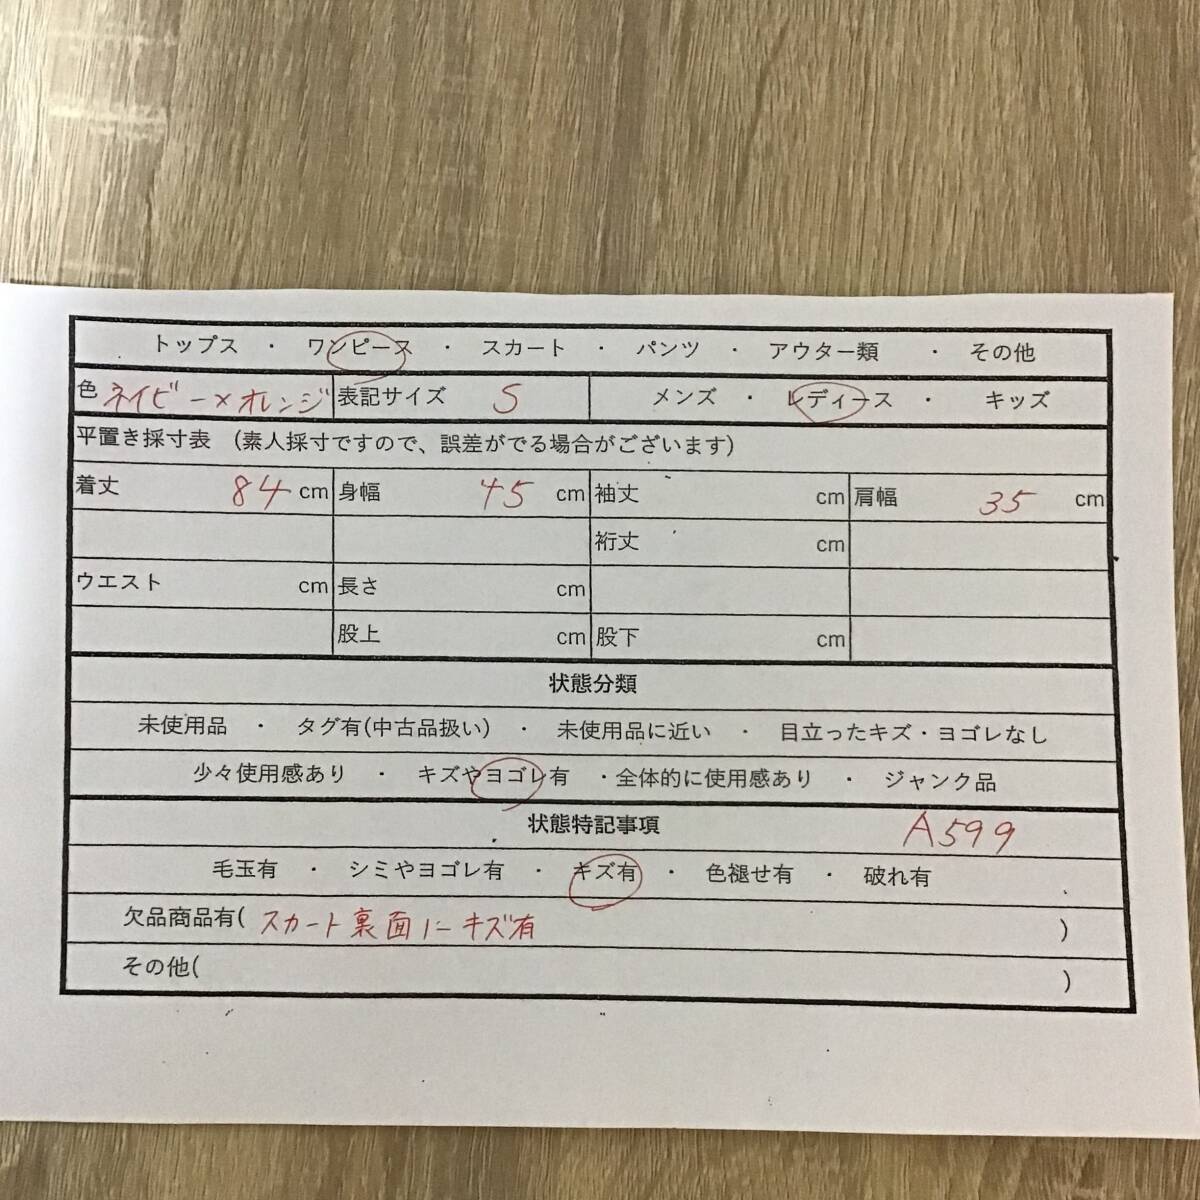 トップス ・ ワンピース ・ スカート ・ パンツ ・ アウター類 ・ その他
色 ネイビー×オレンジ 表記サイズ S メンズ ・ レディース ・ キッズ
平置き採寸表 (素人採寸ですので、誤差がでる場合がございます)
着丈 84 cm 身幅 45 cm 袖丈 cm 肩幅 35 cm
裄丈 cm
ウエスト cm 長さ cm
股上 cm 股下 cm
状態分類
未使用品 ・ タグ有(中古品扱い) ・ 未使用品に近い ・ 目立ったキズ・ヨゴレなし
少々使用感あり ・ キズやヨゴレ有 ・全体的に使用感あり ・ ジャンク品
状態特記事項 A599
毛玉有 ・ シミやヨゴレ有 ・ キズ有 ・ 色褪せ有 ・ 破れ有
欠品商品有( スカート裏面にキズ有 )
その他( )